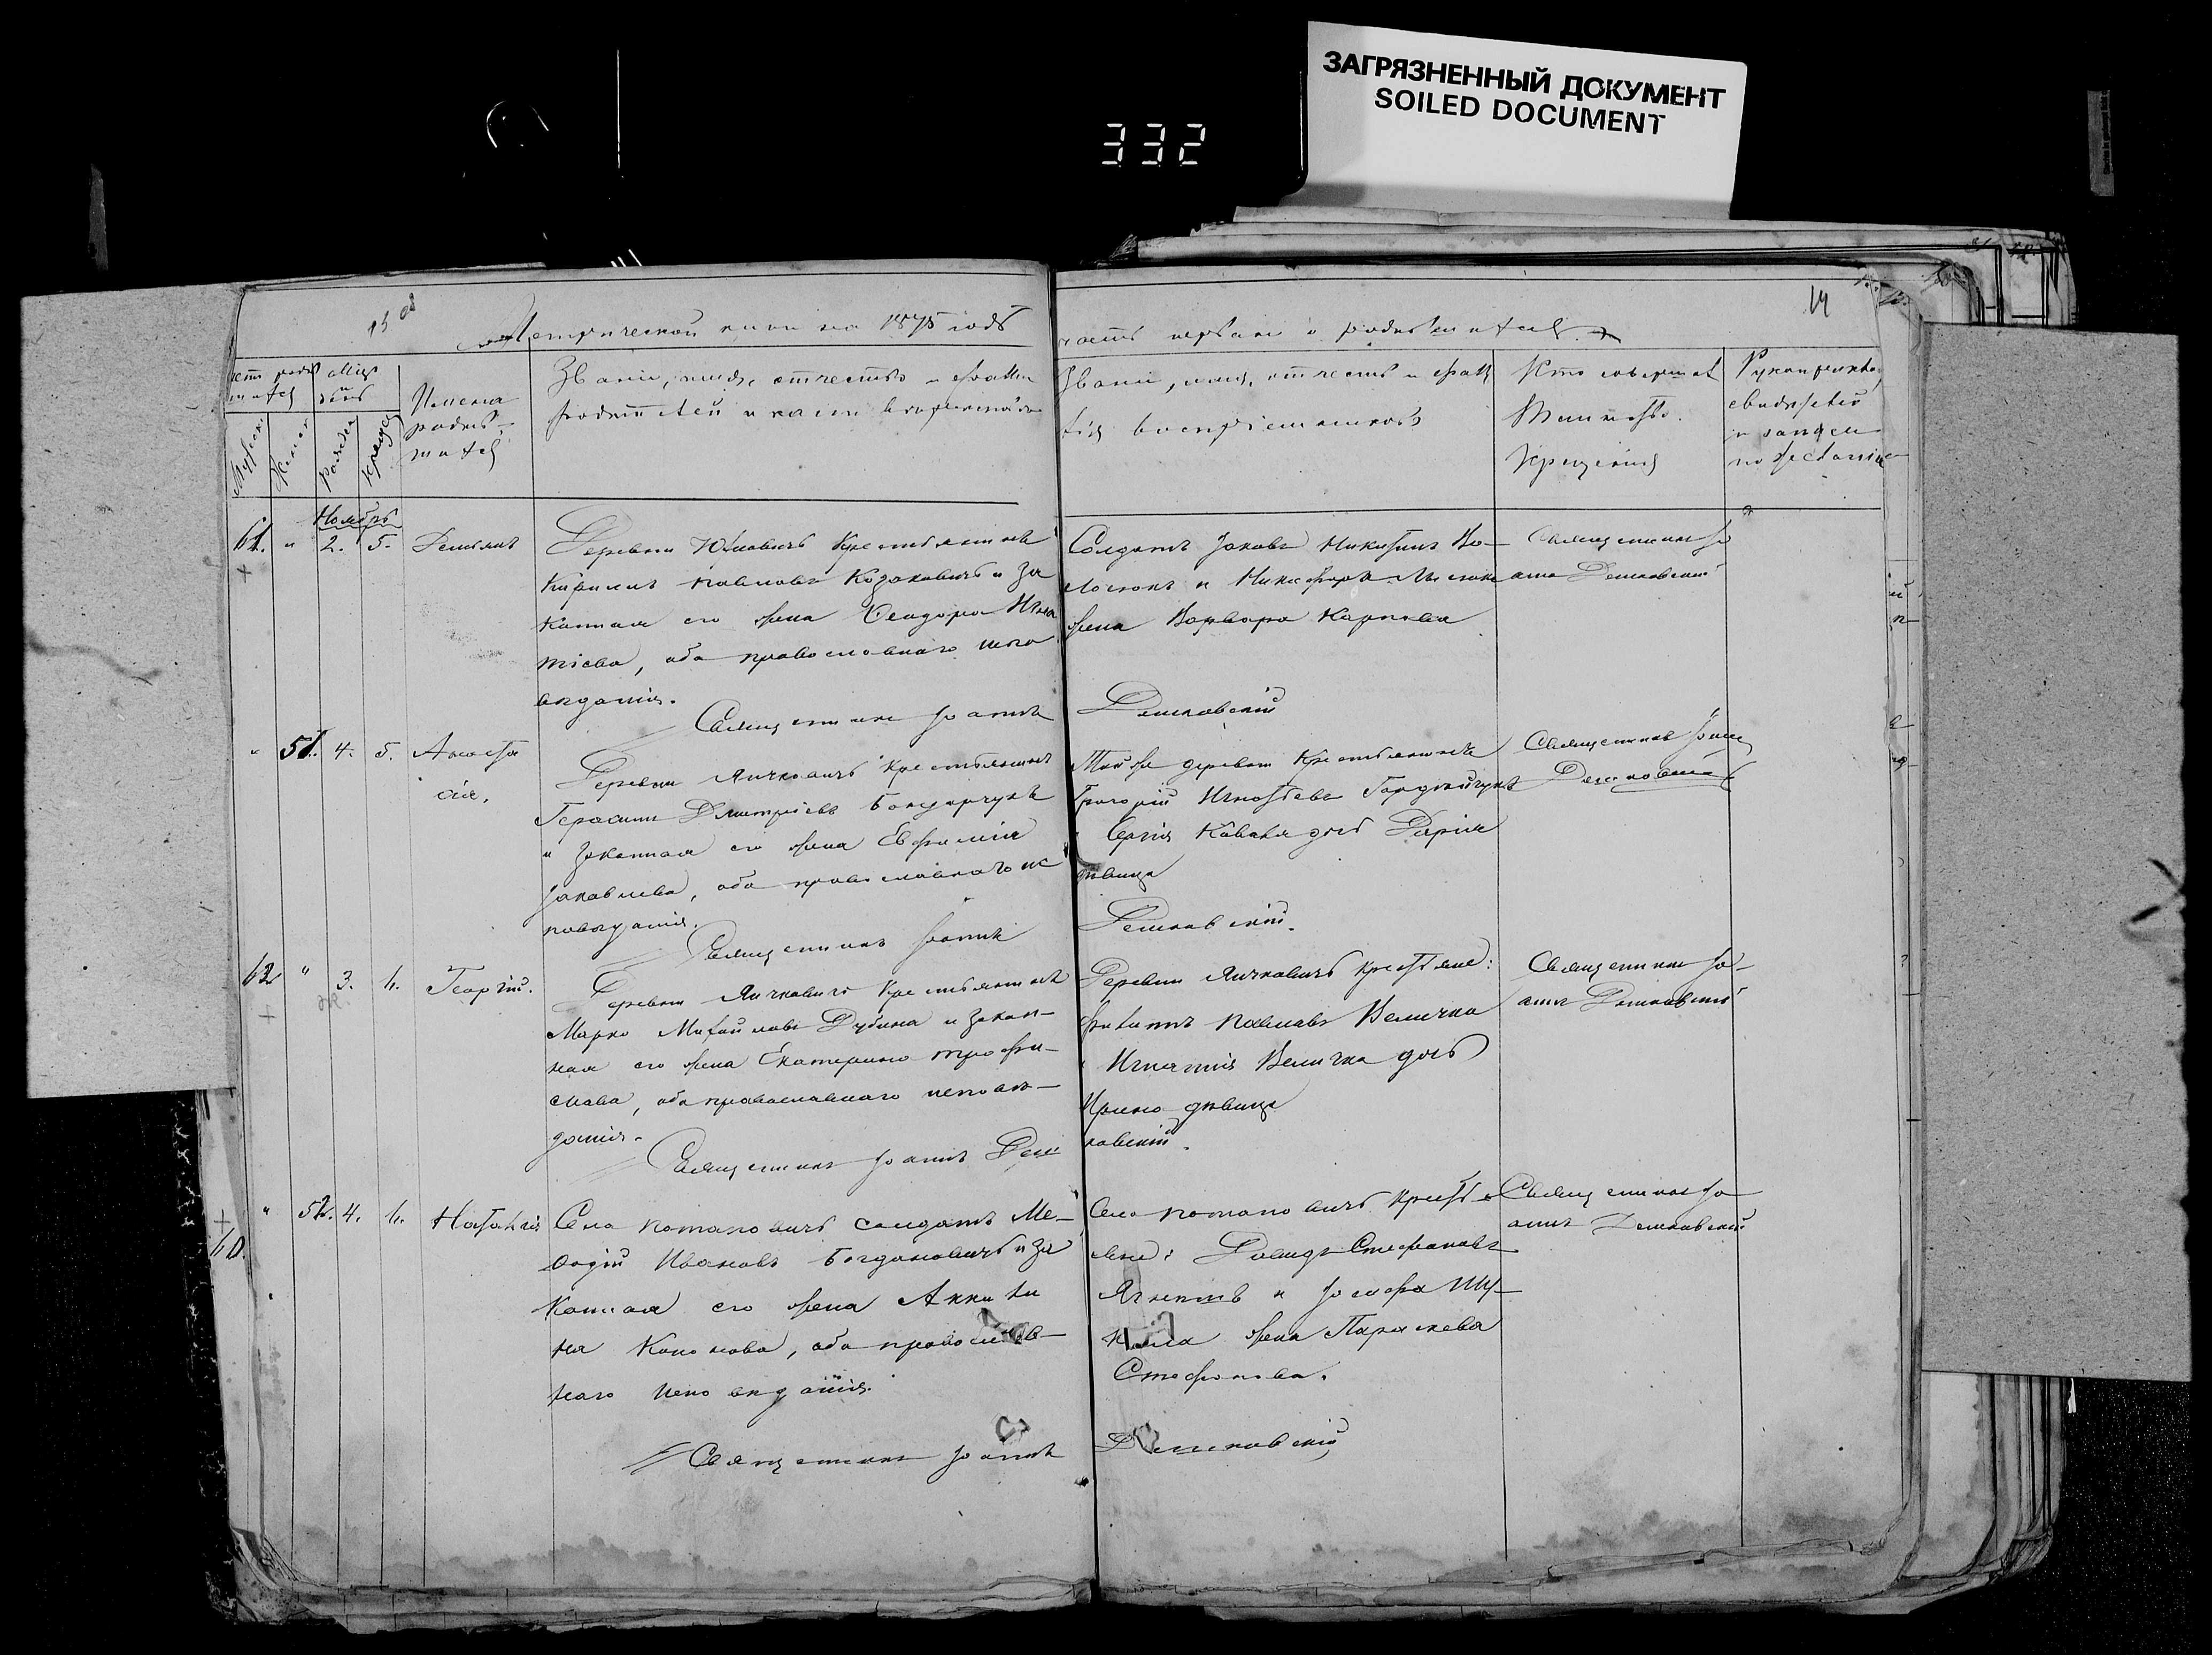 ЗАГРЯЗНЕННЫЙ ДОКУМЕНТ
SOILED DOCUMENT
332
14
Метрической книги на 1875 годъ
часть первая о родившихся
Имена
родив-
шихся
Званіе, имя, отчество и фамил
родителей и какого вѣроисповѣда
Званіе, имя, отчество и фам
лія воспріемниковъ
Кто совершал
Таинство
Крещенія
Рукоприклад
свидѣтелей
о записи
по желанію
Мужеска
Женска
Рожден
Крещен
Ноябрь
61. " 2. 5. Демьянъ
Деревни Юхновичъ Крестьянинъ
Кирилъ Павловъ Козаковичъ и За
конная его жена Феодора Игна
тіева, оба православнаго испо
вѣданія.
Священникъ Іоаннъ
Солдатъ Яковъ Никитинъ Во-
лосюкъ и Никифора
жена Варвара Карпова
Дешковскій
Священникъ Іо
аннъ Дешковскій
" 51. 4. 5. Анаста
сія.
Деревни Яичковичъ Крестьянинъ
Герасимъ Дмитріевъ Бондарчукъ
и Законная его жена Евфимія
Яковлева, оба православнаго ис
повѣданія.
Священникъ Іоаннъ
Той же деревни Крестьянинъ
Григорій Игнатьевъ Гордійчукъ
Сергія Коваля дочь Дарія
дѣвица
Дешковскій.
Священникъ Іоан
Дешковскій
62 " 3. 6. Георгій.
Деревни Яичковичъ Крестьянинъ
Марко Михайловъ Дубина и Закон-
ная его жена Екатерина Трофи-
мова, оба православнаго исповѣ-
данія.
Священникъ Іоаннъ Деш
Деревни Яичковичъ Крестьяне:
Филиппъ Павловъ Величко
Игнатія Величка дочь
Ирина дѣвица
ковскій.
Священникъ Іо-
аннъ Дешковскій
" 52. 4. 6. Наталія
Села Потаповичъ солдатъ Ме-
фодій Ивановъ Богдановичъ и За
Конная его жена Акили
на Кононова, оба православ-
наго исповѣданія.
Священникъ Іоаннъ
Села Потаповичъ Крестья
не: Давидъ Стефановъ
и Іосифа Шу-
жена Параскева
Стефанова.
Дешковскій
Священникъ Іо
аннъ Дешковскій